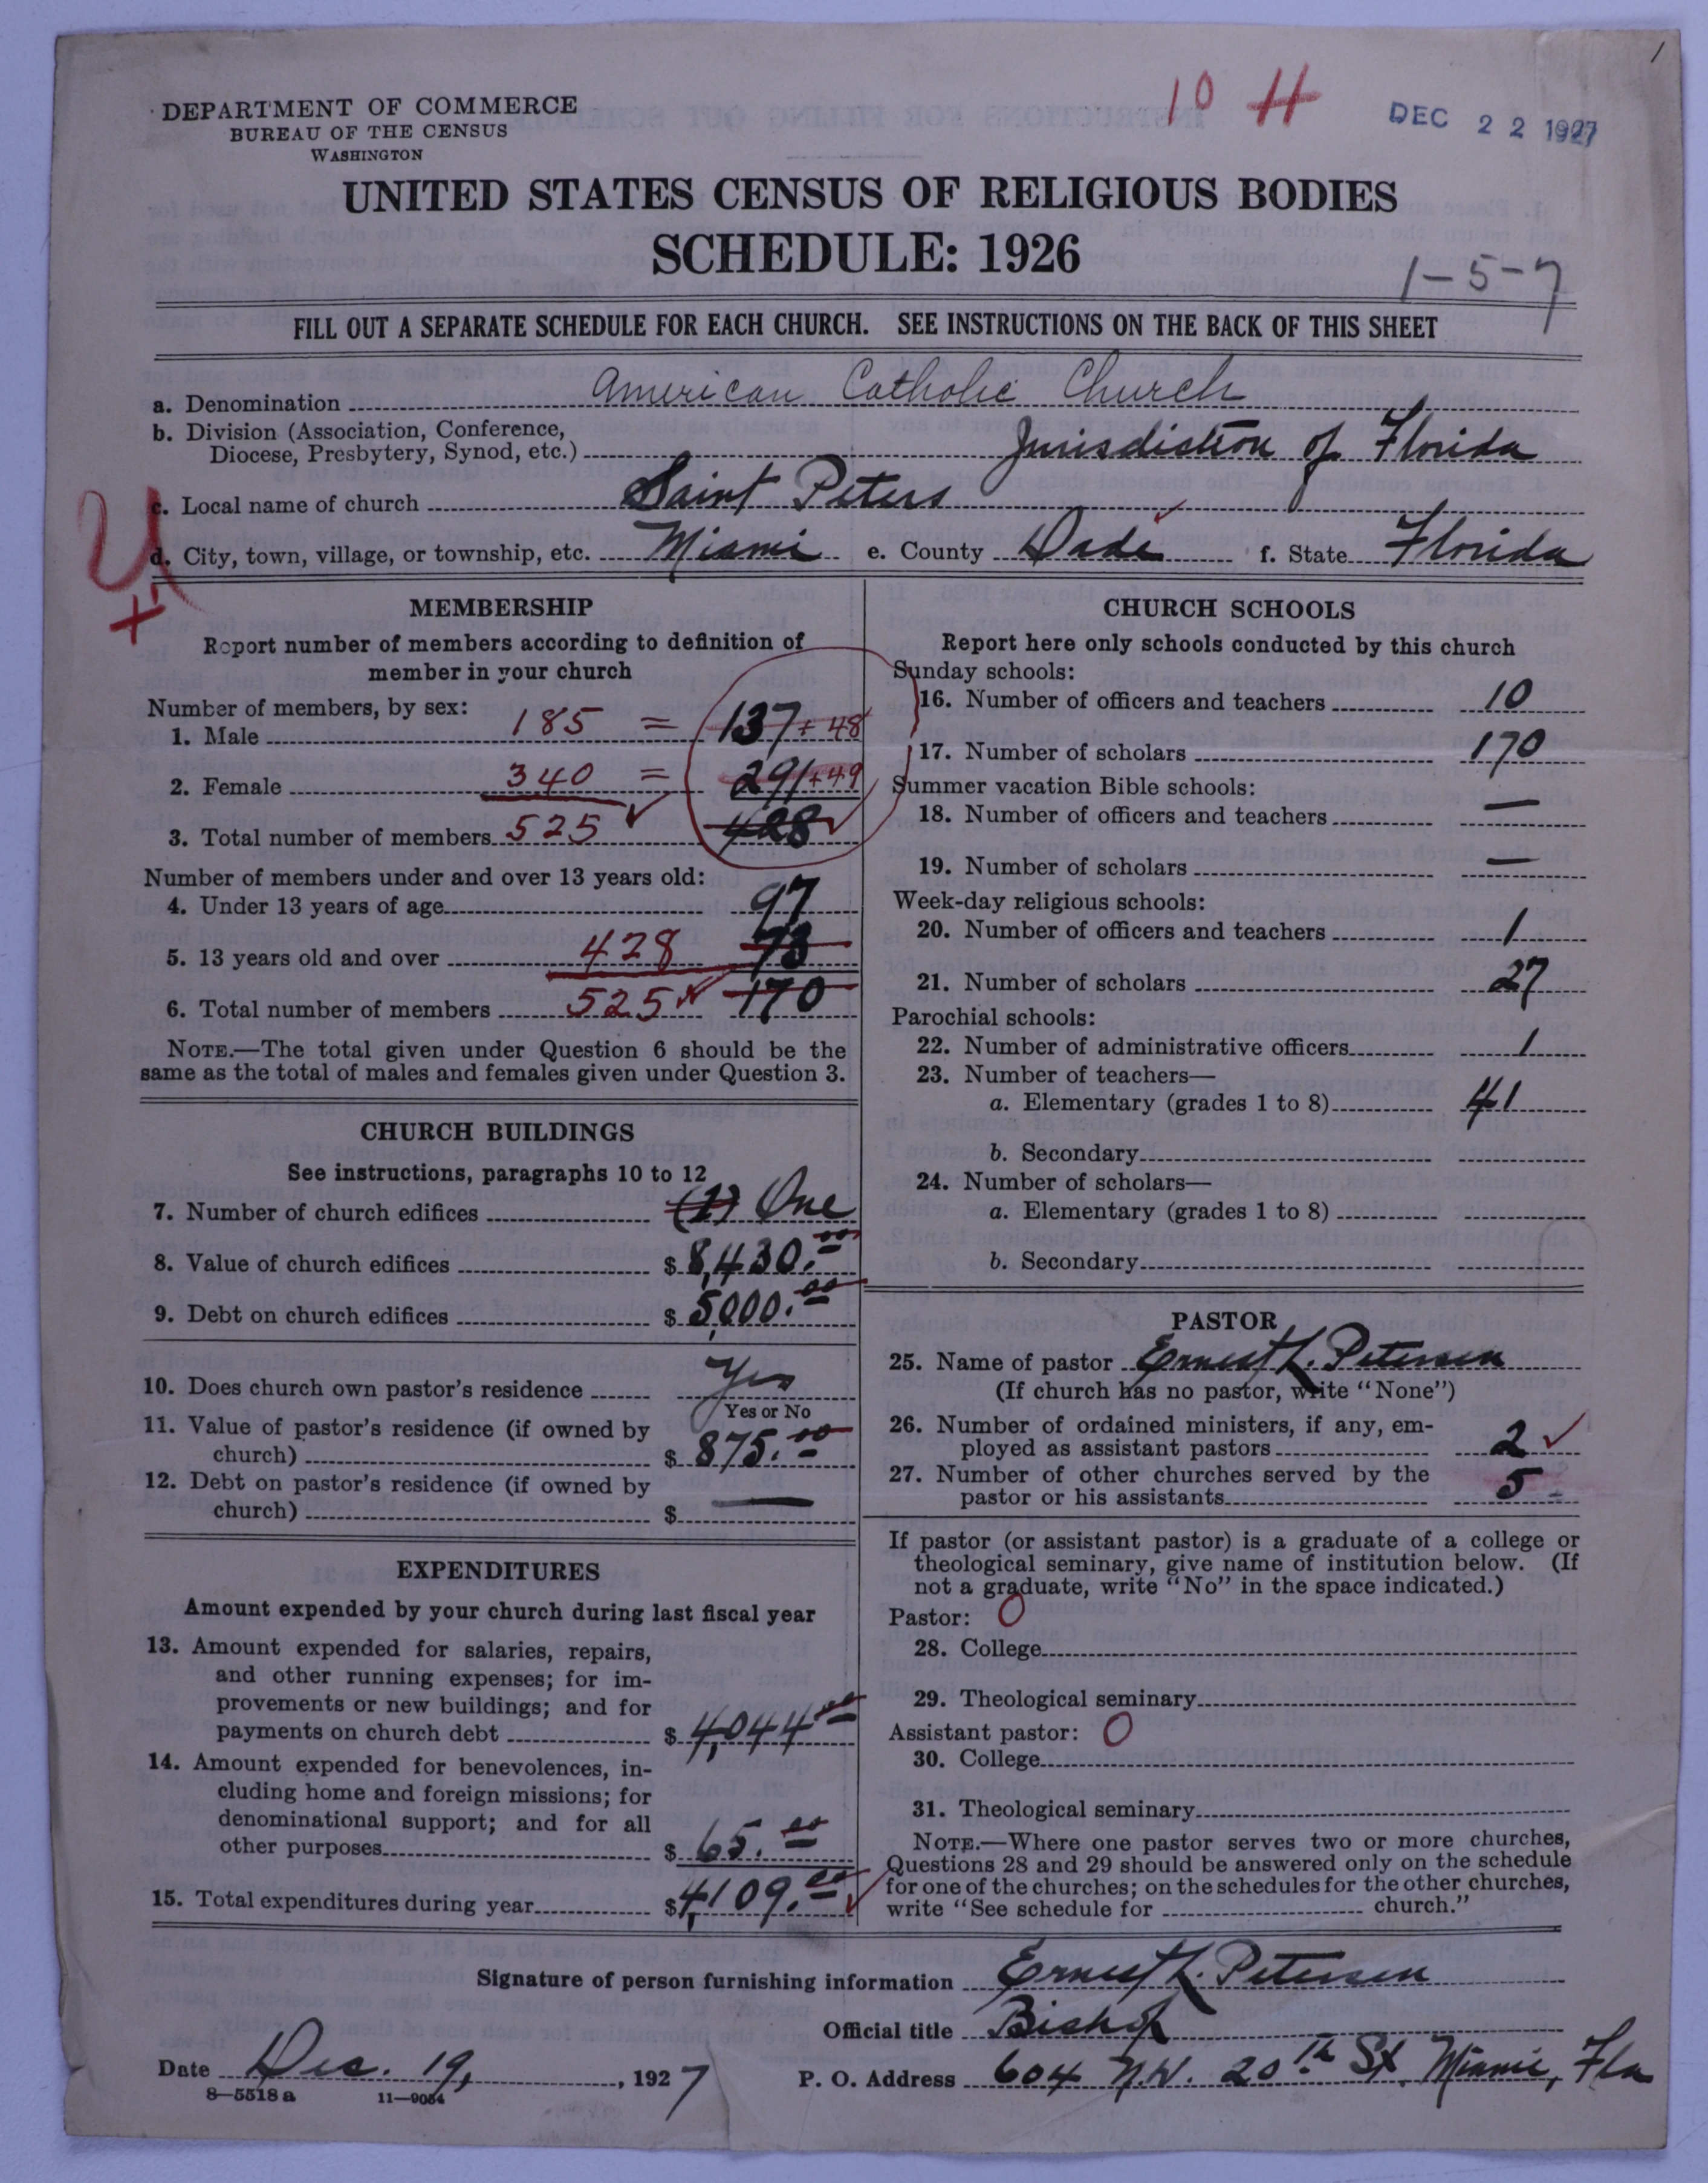 1
10 H
DEC 22 1927
DEPARTMENT OF COMMERCE
BUREAU OF THE CENSUS
WASHINGTON
UNITED STATES CENSUS OF RELIGIOUS BODIES
SCHEDULE: 1926
1-5-7
FILL OUT A SEPARATE SCHEDULE FOR EACH CHURCH. SEE INSTRUCTIONS ON THE BACK OF THIS SHEET
a. Denomination American Catholic Church
b. Division (Association, Conference,
Diocese, Presbytery, Synod, etc.) Jurisdiction of Florida
c. Local name of church Saint Peters
d. City, town, village, or township, etc. Miami e. County Dade f. State Florida
MEMBERSHIP
Report number of members according to definition of
member in your church
Number of members, by sex:
1. Male 185 = 137 + 48
2. Female 340 = 291 + 49
3. Total number of members 525 428
Number of members under and over 13 years old:
4. Under 13 years of age 97
5. 13 years old and over 428 73
6. Total number of members 525 170
NOTE.—The total given under Question 6 should be the
same as the total of males and females given under Question 3.
CHURCH BUILDINGS
See instructions, paragraphs 10 to 12
7. Number of church edifices (1) One
8. Value of church edifices $ 8,430.00
9. Debt on church edifices $ 5,000.00
10. Does church own pastor's residence Yes
Yes or No
11. Value of pastor's residence (if owned by
church) $ 875.00
12. Debt on pastor's residence (if owned by
church) $ —
EXPENDITURES
Amount expended by your church during last fiscal year
13. Amount expended for salaries, repairs,
and other running expenses; for im-
provements or new buildings; and for
payments on church debt $ 4,044 00
14. Amount expended for benevolences, in-
cluding home and foreign missions; for
denominational support; and for all
other purposes $ 65.00
15. Total expenditures during year $ 4,109.00
CHURCH SCHOOLS
Report here only schools conducted by this church
Sunday schools:
16. Number of officers and teachers 10
17. Number of scholars 170
Summer vacation Bible schools:
18. Number of officers and teachers —
19. Number of scholars —
Week-day religious schools:
20. Number of officers and teachers 1
21. Number of scholars 27
Parochial schools:
22. Number of administrative officers 1
23. Number of teachers—
a. Elementary (grades 1 to 8) 41
b. Secondary
24. Number of scholars—
a. Elementary (grades 1 to 8)
b. Secondary
PASTOR
25. Name of pastor Ernest L. Petersen
(If church has no pastor, write "None")
26. Number of ordained ministers, if any, em-
ployed as assistant pastors 2
27. Number of other churches served by the
pastor or his assistants 5
If pastor (or assistant pastor) is a graduate of a college or
theological seminary, give name of institution below. (If
not a graduate, write "No" in the space indicated.)
Pastor: O
28. College
29. Theological seminary
Assistant pastor: O
30. College
31. Theological seminary
NOTE.—Where one pastor serves two or more churches,
Questions 28 and 29 should be answered only on the schedule
for one of the churches; on the schedules for the other churches,
write "See schedule for church."
Signature of person furnishing information Ernest L. Petersen
Official title Bishop
Date Dec. 19, 1927 P. O. Address 604 N.W. 20th St. Miami, Fla
8—5518 a 11—9054